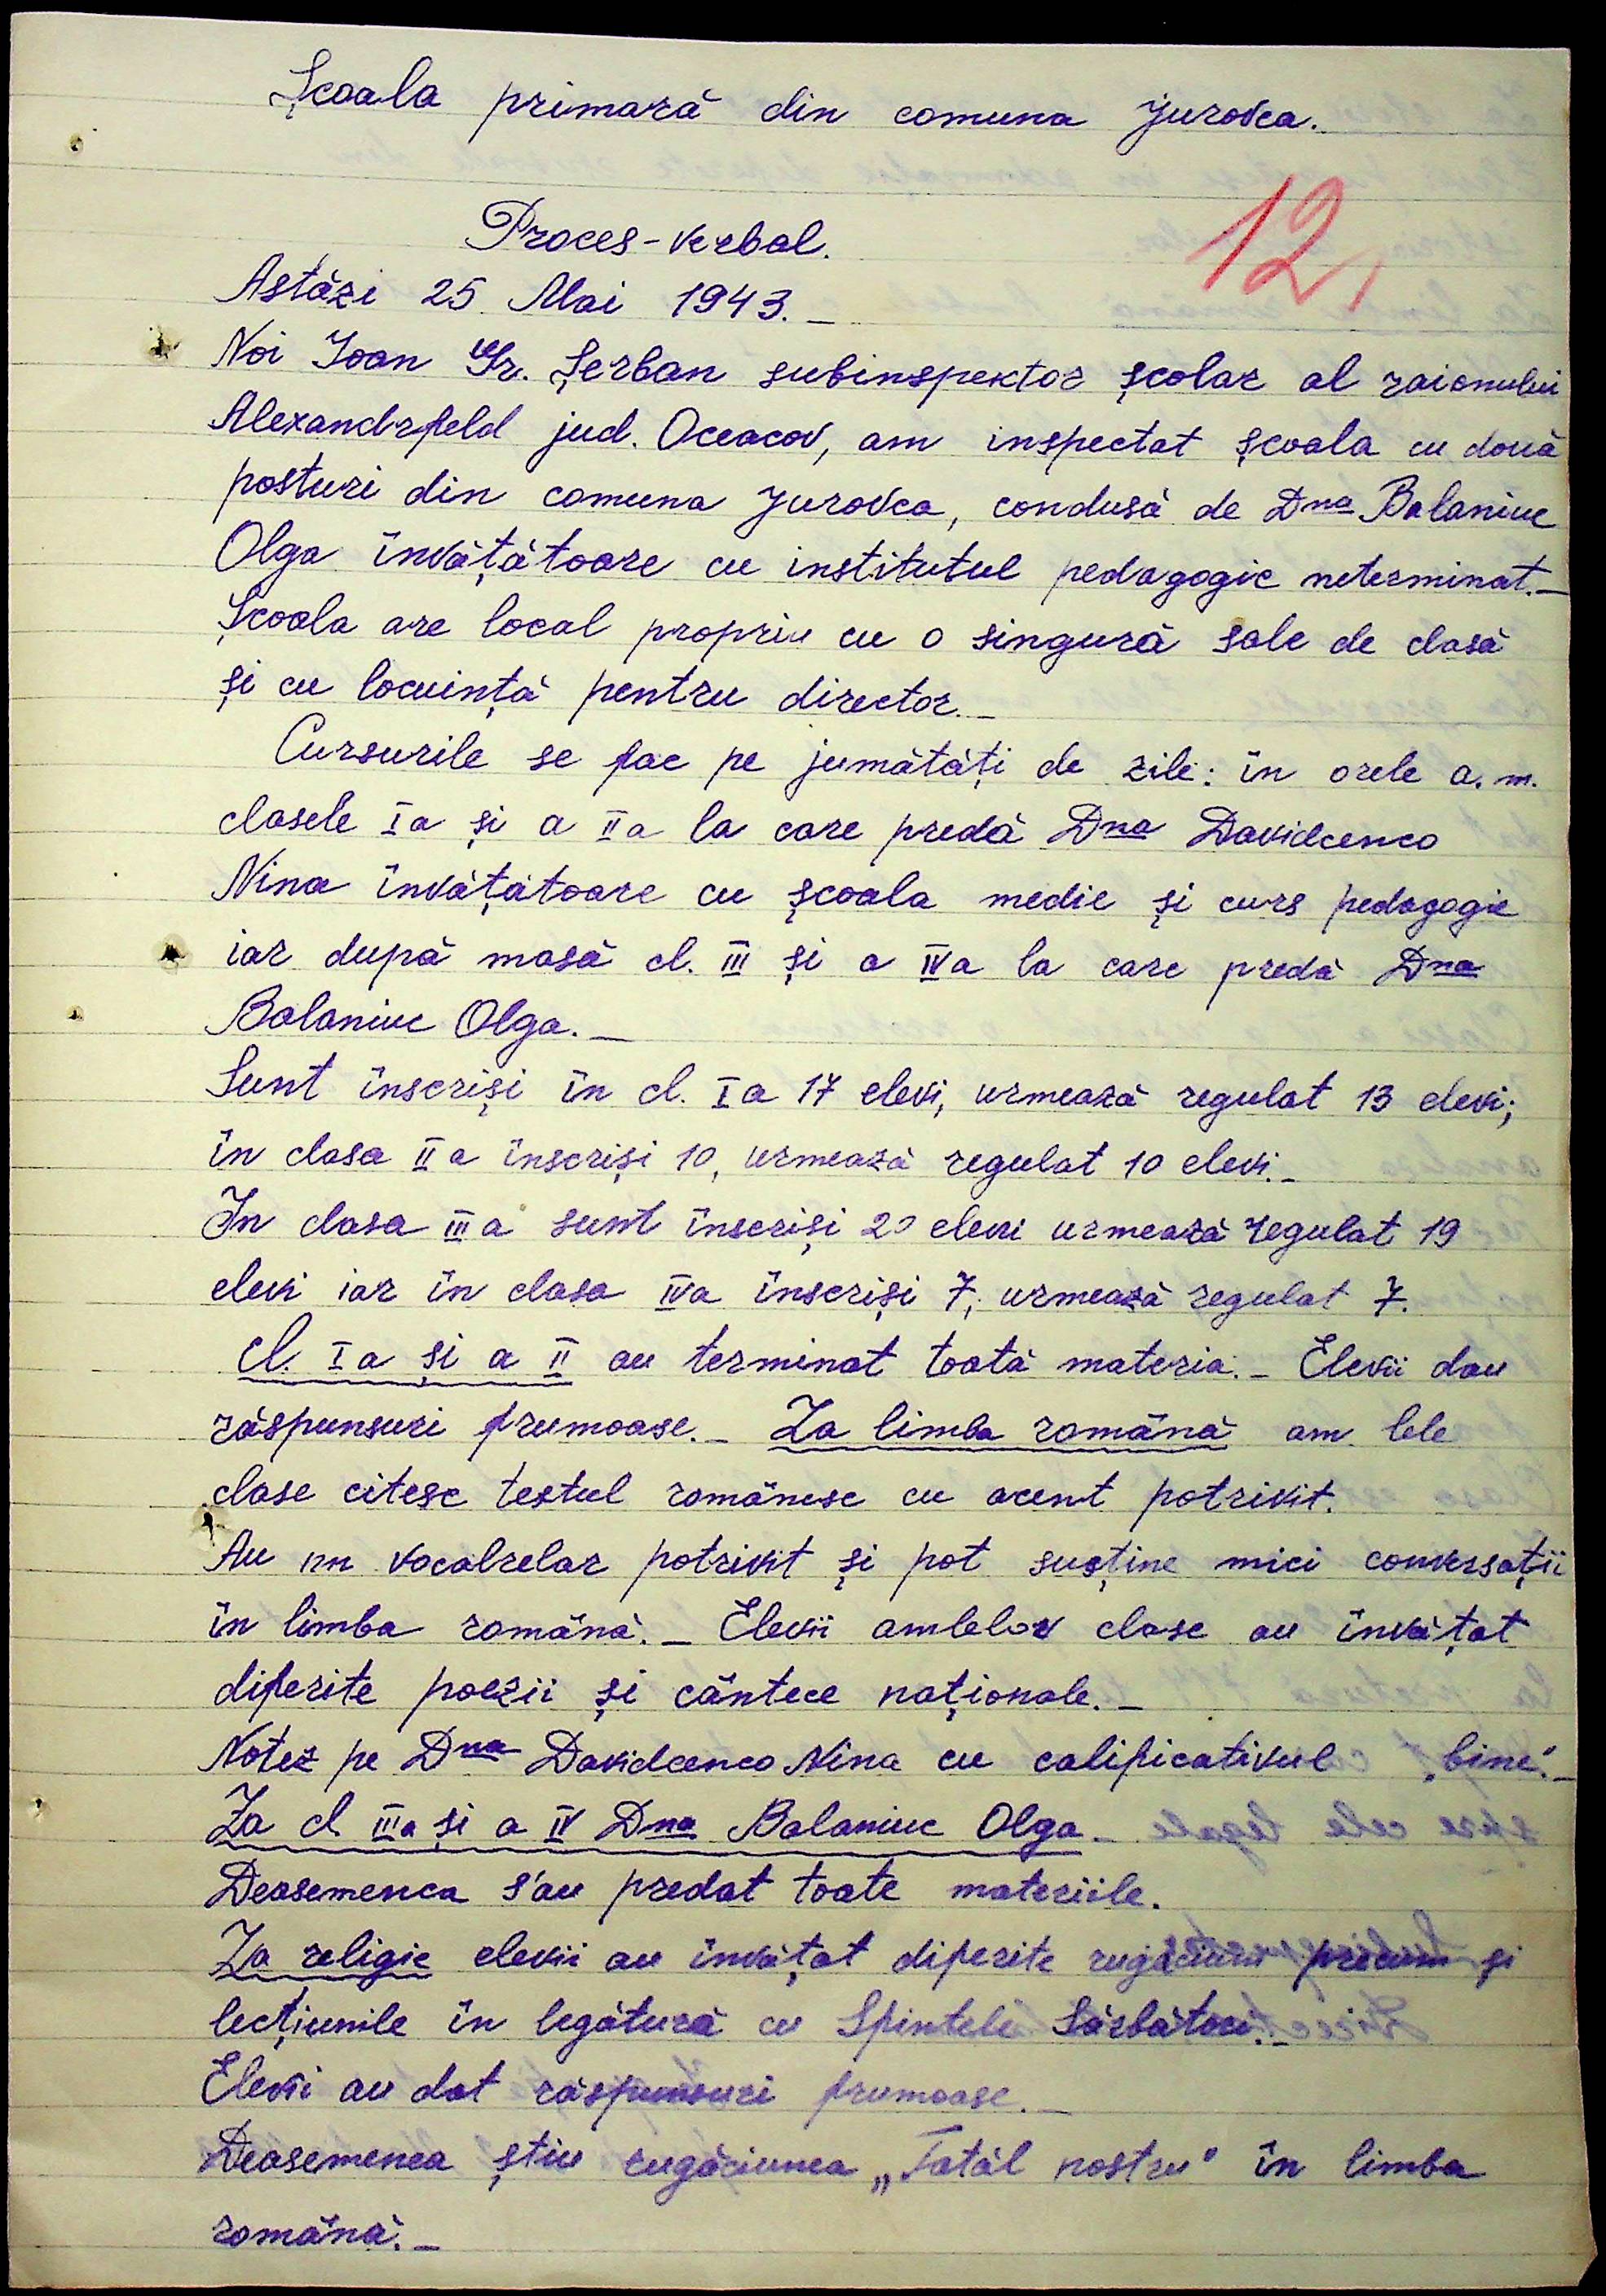 Școala primară din comuna Jurovca.
12,
Proces-verbal.
Astăzi 25 Mai 1943._
Noi Ioan Gr. Șerban subinspector școlar al raionului
Alexandrfeld jud. Oceacov, am inspectat școala cu două
posturi din comuna Jurovca, condusă de Dna Balaniuc
Olga învățătoare cu institutul pedagogic neterminat._
Școala are local propriu cu o singură sale de clasă
și cu locuință pentru director._
Cursurile se fac pe jumătăți de zile: în orele a.m.
clasele Ia și a IIa la care predă Dna Davidcenco
Nina învățătoare cu școala medie și curs pedagogic
iar după masă cl. III și a IVa la care predă Dna
Balaniuc Olga._
Sunt înscriși în cl. Ia 17 elevi, urmează regulat 13 elevi;
în clasa IIa înscriși 10, urmează regulat 10 elevi._
In clasa IIIa sunt înscriși 20 elevi urmează regulat 19
elevi iar în clasa IVa înscriși 7, urmează regulat 7.
cl. Ia și a II au terminat toată materia._ Elevii dau
răspunsuri frumoase._ La limba română am bele
clase citesc textul românesc cu acent potrivit.
Au un vocabular potrivit și pot susține mici conversații
în limba română._ Elevii ambelor clase au învățat
diferite poezii și cântece naționale._
Notez pe Dna Davidcenco Nina cu calificativul „bine"._
La cl. IIIa și a IV Dna Balaniuc Olga._
Deasemenea s'au predat toate materiile.
La religie elevii au învățat diferite rugăciuni precum și
lecțiunile în legătură cu Sfintele Sărbători._
Elevii au dat răspunsuri frumoase._
Deasemenea știu rugăciunea „Tatăl nostru" în limba
română._